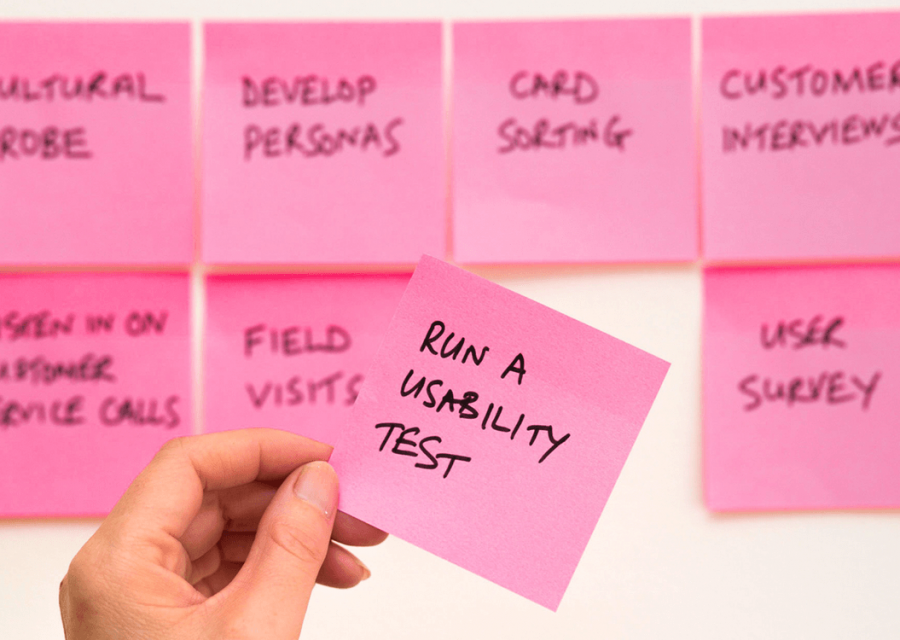 ULTURAL
ROBE
DEVELOP
PERSONAS
CARD
SORTING
CUSTOMER
INTERVIEWS
ISTEN IN ON
USTOMER
ERVICE CALLS
FIELD
VISITS
RUN A
USABILITY
TEST
USER
SURVEY